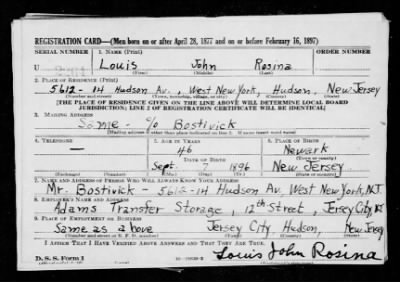 REGISTRATION CARD—(Men born on or after April 28, 1877 and on or before February 16, 1897)
SERIAL NUMBER 1. NAME (Print) ORDER NUMBER
Louis John Rosina
(First) (Middle) (Last)
2. PLACE OF RESIDENCE (Print)
5612-14 Hudson Av., West New York, Hudson, New Jersey
(Number and street) (Town, township, village, or city) (County) (State)
[THE PLACE OF RESIDENCE GIVEN ON THE LINE ABOVE WILL DETERMINE LOCAL BOARD
JURISDICTION; LINE 2 OF REGISTRATION CERTIFICATE WILL BE IDENTICAL]
3. MAILING ADDRESS
Same - c/o Bostivick
[Mailing address if other than place indicated on line 2. If same insert word same]
4. TELEPHONE 5. AGE IN YEARS 6. PLACE OF BIRTH
— 46 Newark
DATE OF BIRTH (Town or county)
Sept. 7 1896 New Jersey
(Exchange) (Number) (Mo.) (Day) (Yr.) (State or country)
7. NAME AND ADDRESS OF PERSON WHO WILL ALWAYS KNOW YOUR ADDRESS
Mr. Bostivick - 5612-14 Hudson Av. West New York, N.J.
8. EMPLOYER'S NAME AND ADDRESS
Adams Transfer Storage, 12th Street, Jersey City, NJ
9. PLACE OF EMPLOYMENT OR BUSINESS
Same as above Jersey City, Hudson, New Jersey
(Number and street or R. F. D. number) (Town) (County) (State)
I AFFIRM THAT I HAVE VERIFIED ABOVE ANSWERS AND THAT THEY ARE TRUE.
D. S. S. Form 1 Louis John Rosina